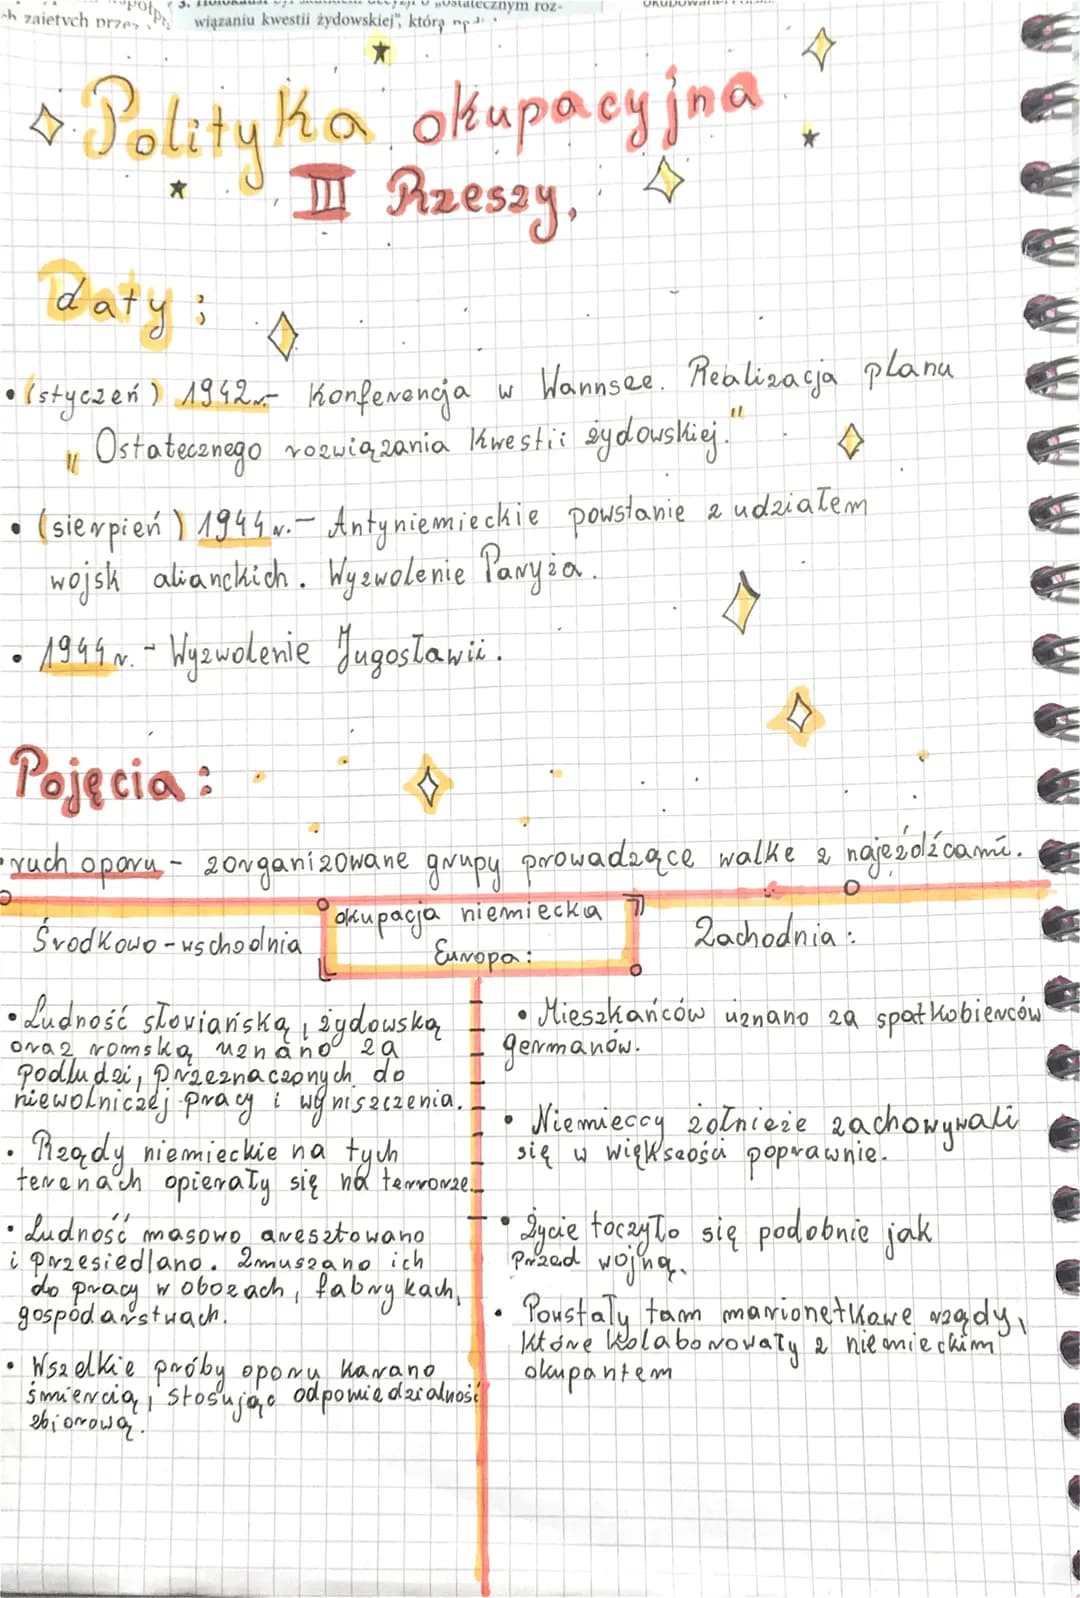 3. Holokaust
"ostatecznym roz-
zajętych przez
wiązaniu kwestii żydowskiej", którą
Polityka okupacyjna
III Rzeszy,
Daty:
• (styczeń) 1942r.- Konferencja w Wannsee. Realizacja planu
"Ostatecznego rozwiązania Kwestii żydowskiej."
• (sierpień) 1944r.- Antyniemieckie powstanie z udziałem
wojsk alianckich. Wyzwolenie Paryża.
• 1944r. - Wyzwolenie Jugosławii.
Pojęcia:
• ruch oporu - zorganizowane grupy prowadzące walkę z najeźdźcami.
okupacja niemiecka
Europa:
Środkowo-wschodnia
• Ludność słowiańską, żydowską
oraz romską uznano za
podludzi, przeznaczonych do
niewolniczej pracy i wyniszczenia.
• Rządy niemieckie na tych
terenach opierały się na terrorze.
• Ludność masowo aresztowano
i przesiedlano. Zmuszano ich
do pracy w obozach, fabrykach,
gospodarstwach.
• Wszelkie próby oporu karano
śmiercią, stosując odpowiedzialność
zbiorową.
Zachodnia:
• Mieszkańców uznano za spatkobierców
germanów.
• Niemieccy żołnieże zachowywali
się w większości poprawnie.
• Życie toczyło się podobnie jak
przed wojną.
• Powstały tam marionetkowe rządy,
które kolaborowały z niemieckim
okupantem